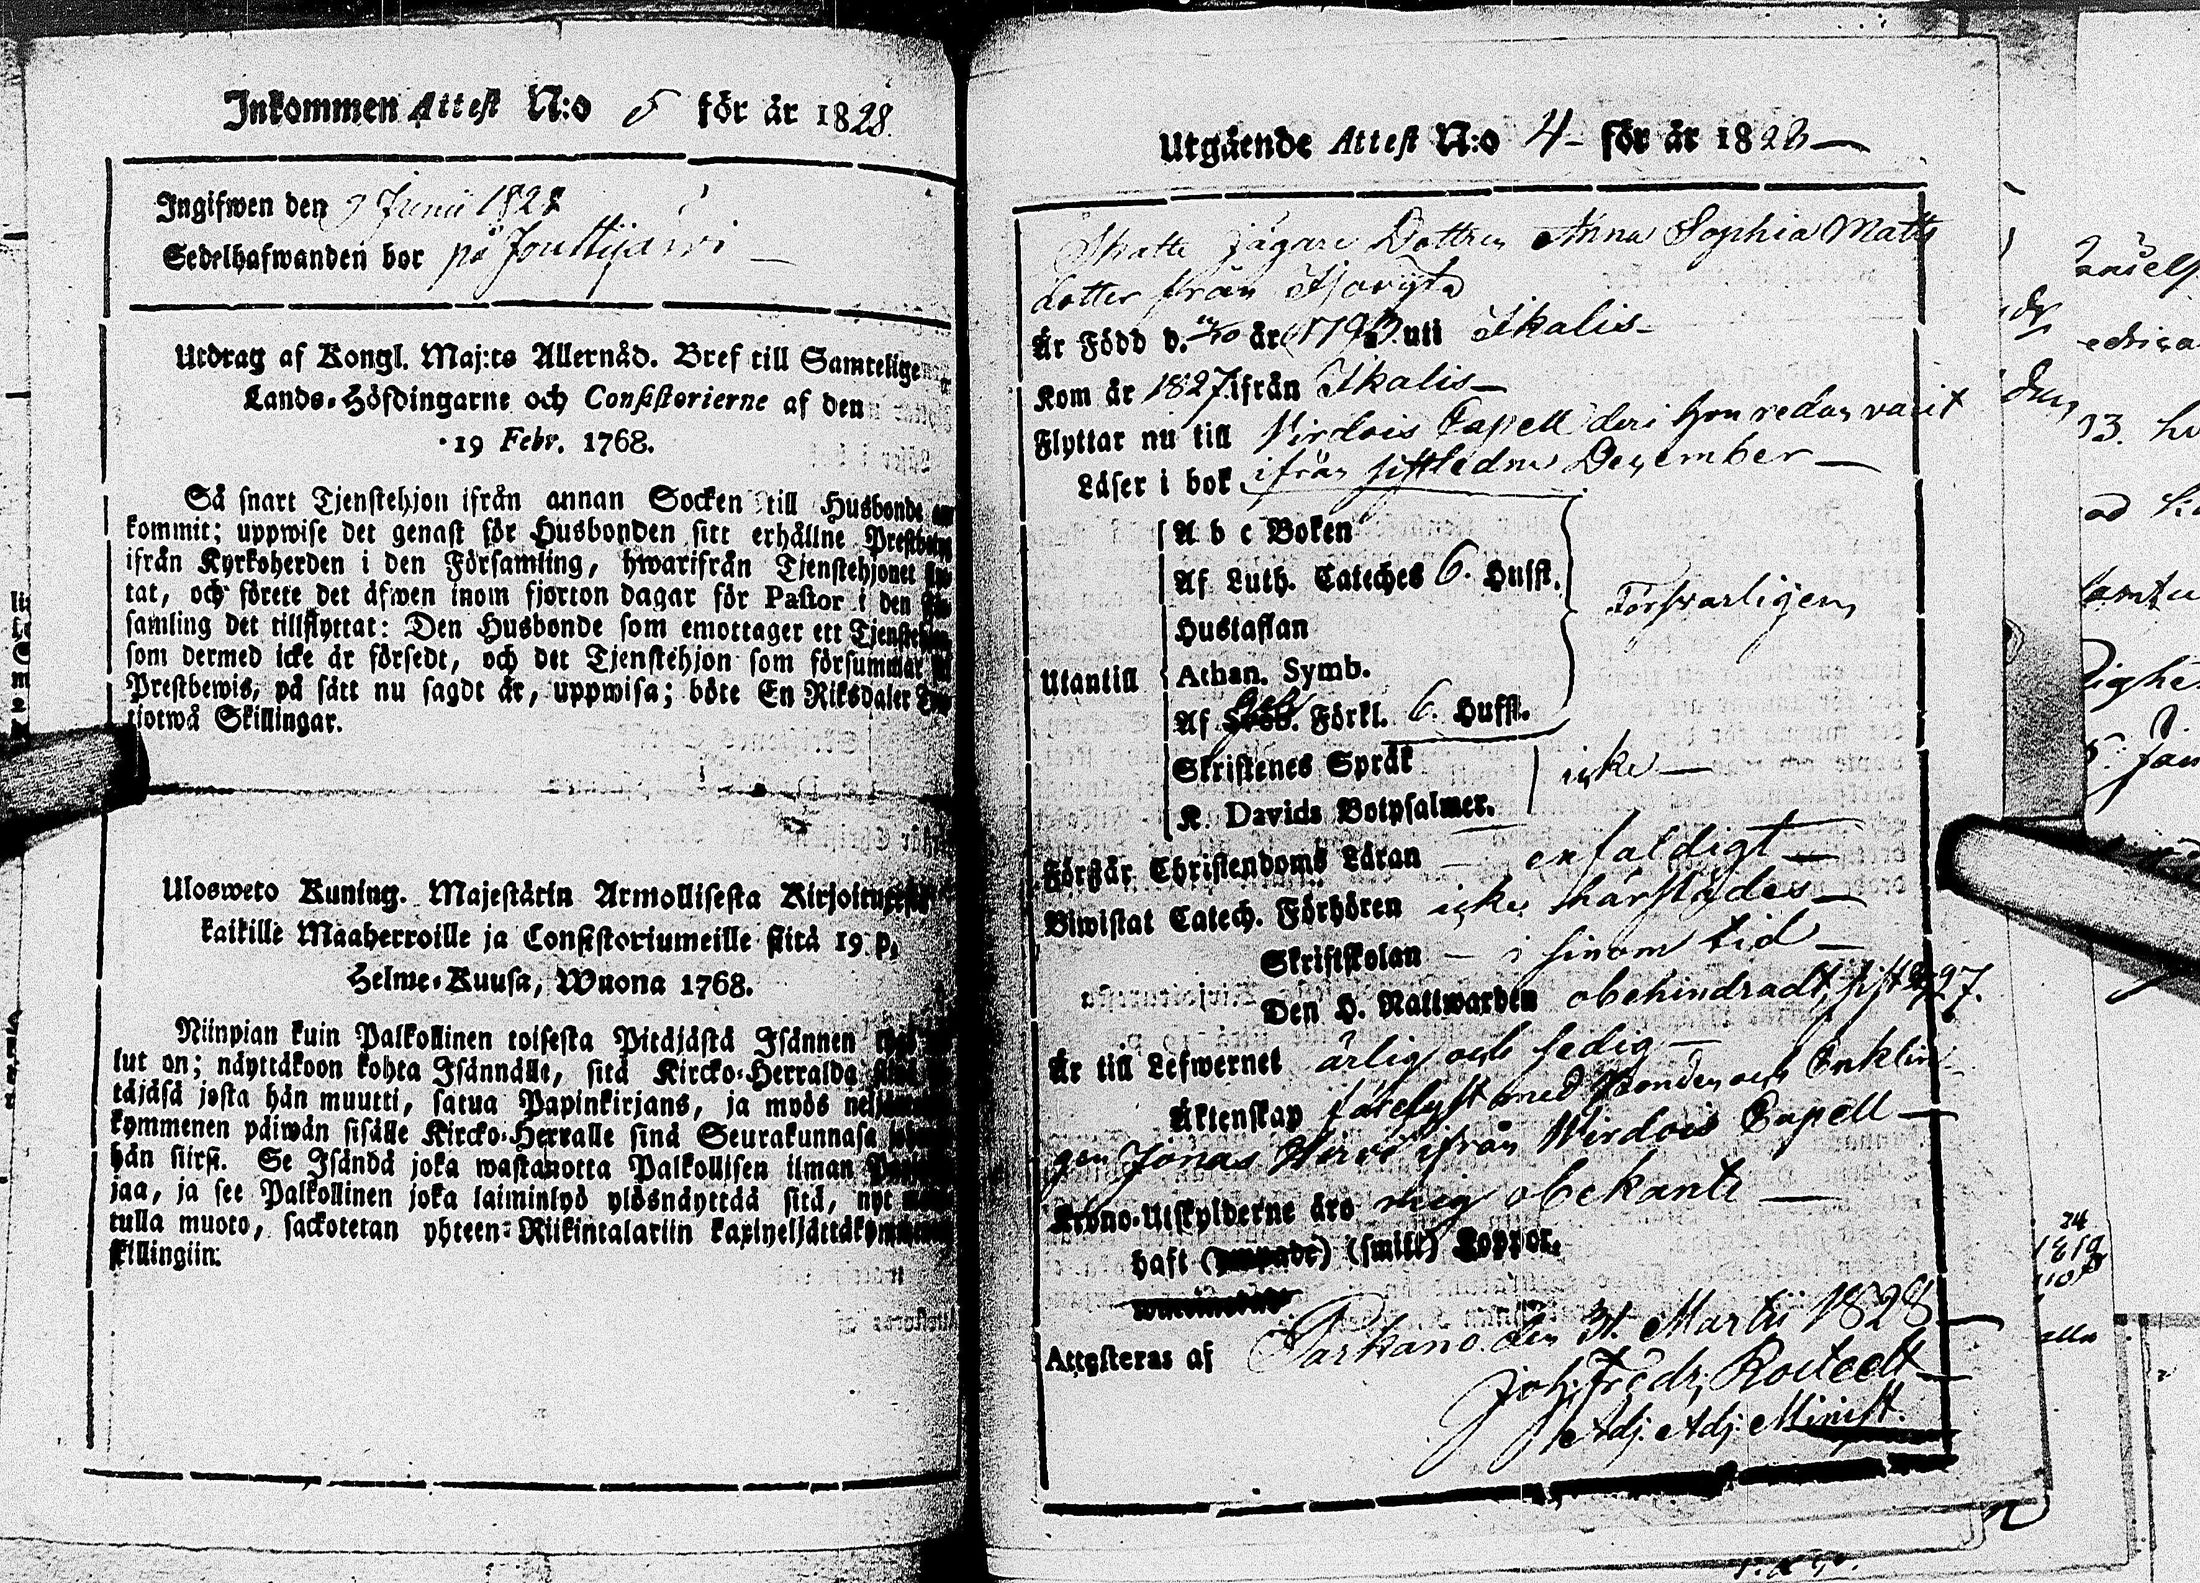 Inkommen Attest N:o 5 för år 1828.
Ingifwen den 9 Junii 1828
Sedelhafwanden bor på Jouttijärvi
Utdrag af Kongl. Maj:ts Allernåd. Bref till Samtelige
Lands-Höfdingarne och Consistorierne af den
19 Febr. 1768.
Så snart Tjenstehjon ifrån annan Socken till Husbonde an
kommit; uppwise det genast för Husbonden sitt erhållne Prestbewis
ifrån Kyrkoherden i den Församling, hwarifrån Tjenstehjonet flyt
tat, och förete det äfwen inom fjorton dagar för Pastor i den För
samling det tillflyttat: Den Husbonde som emottager ett Tjenstehjon
som dermed icke är försedt, och det Tjenstehjon som försummar
Prestbewis, på sätt nu sagdt är, uppwisa; böte En Riksdaler
tiotwå Skillingar.
Ulosweto Kuning. Majestätin Armollisesta Kirjoituxesta
kaikille Maaherroille ja Consistoriumeille siitä 19 p.
Helme-Kuusa, Wuona 1768.
Niinpian kuin Palkollinen toisesta Pitäjästä Isännen
lut on; näyttäkoon kohta Isännälle, sitä Kircko-Herralda
täjäsä josta hän muutti, saatua Papinkirjans, ja myös
kymmenen päiwän sisälle Kircko-Herralle sinä Seurakunnasa
hän siirsi. Se Isändä joka wastanotta Palkollisen ilman
jaa, ja see Palkollinen joka laiminlyö ylösnäyttää sitä, nyt
tulla muoto, sackotetan yhteen Riikintalariin kaxineljättäkymmend
killingiin.
Utgående Attest N:o 4 för år 1828
Skatte Jägare Dottren Anna Sophia Matts
dotter från
Är Född d. år 1793 uti Ikalis
Kom år 1827 ifrån Ikalis
Flyttar nu till Virdois Capell deri hon redan varit
Läser i bok ifrån sistledne December
A b c Boken
Af Luth. Cateches 6. Hufst.
Hustaflan
Försvarligen
Utantill
Athan. Symb.
Af Förkl. 6. Hufst.
Skriftenes Språk
icke
K. Davids Botpsalmer.
Förstår Christendoms Läran enfaldigt
Biwistat Catech. Förhören icke härstädes
Skriftskolan i sinom tid
Den H. Nattwarden obehindradt, sist
Är till Lefwernet ärlig och sedig
Äktenskap förelyst med Bonden och Enklin
gen Jonas ifrån Wirdois Capell
Krono-Utskylderne äro mig obekante
haft (smitt) Koppor.
Attesteras af Parkano den 31. Martii 1828
Joh. Fredr. Rosteedt
Adj. Adj. Minist.